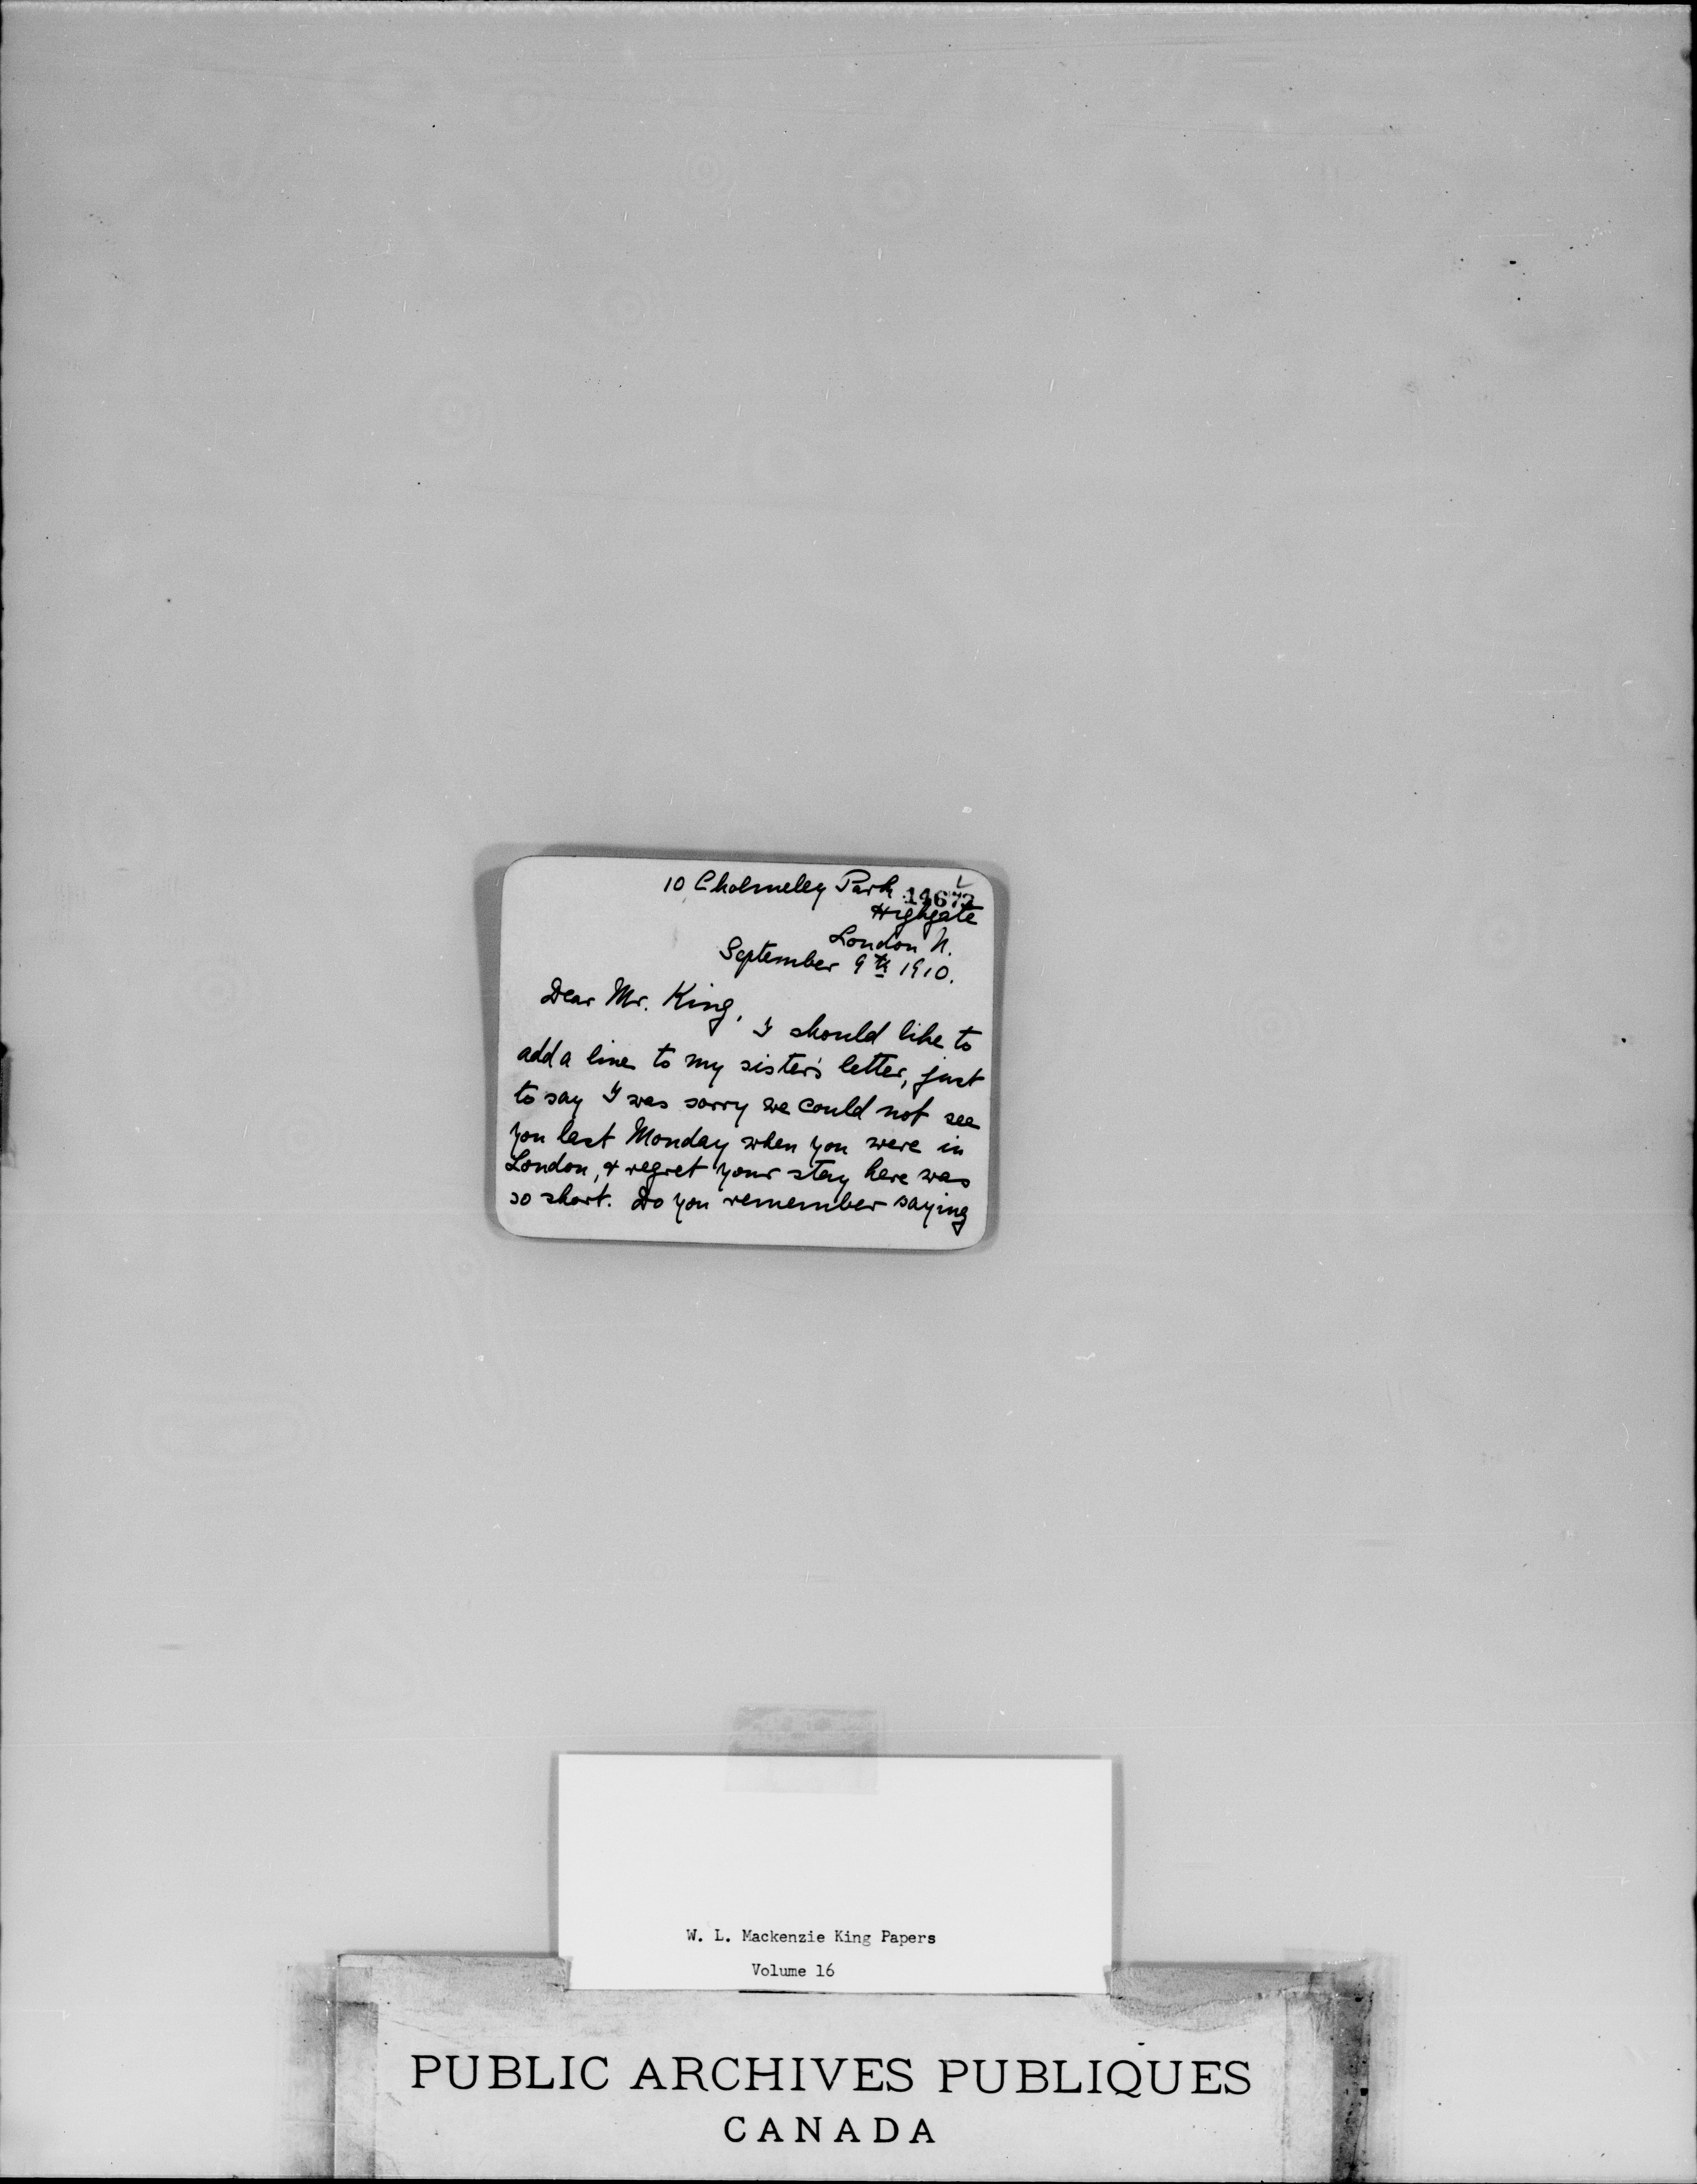 10 Cholmeley Park
14672
Highgate
London N.
September 9th 1910.
Dear Mr. King,
I should like to
add a line to my sister's letter, just
to say I was sorry we could not see
you last Monday when you were in
London, & regret your stay here was
so short. Do you remember saying
W. L. Mackenzie King Papers
Volume 16
PUBLIC ARCHIVES PUBLIQUES
CANADA